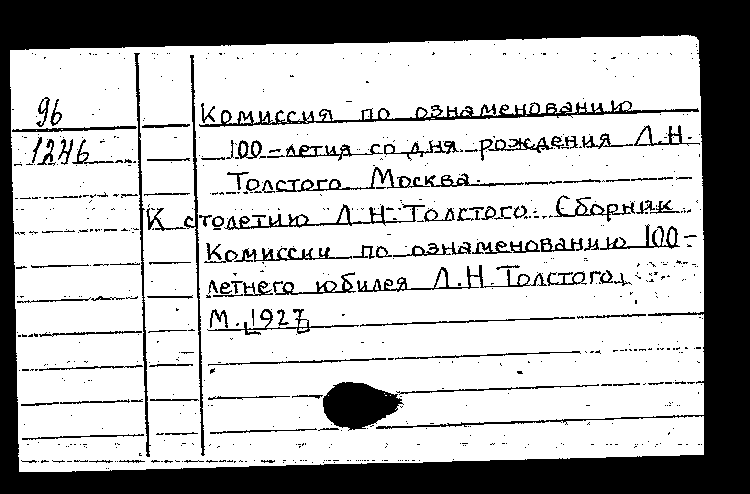 96
Комиссия по ознаменованию
1246
100-летия со дня рождения Л.Н.
Толстого. Москва.
К столетию Л.Н. Толстого. Сборник
Комиссии по ознаменованию 100-
летнего юбилея Л.Н. Толстого.
М., [1927]